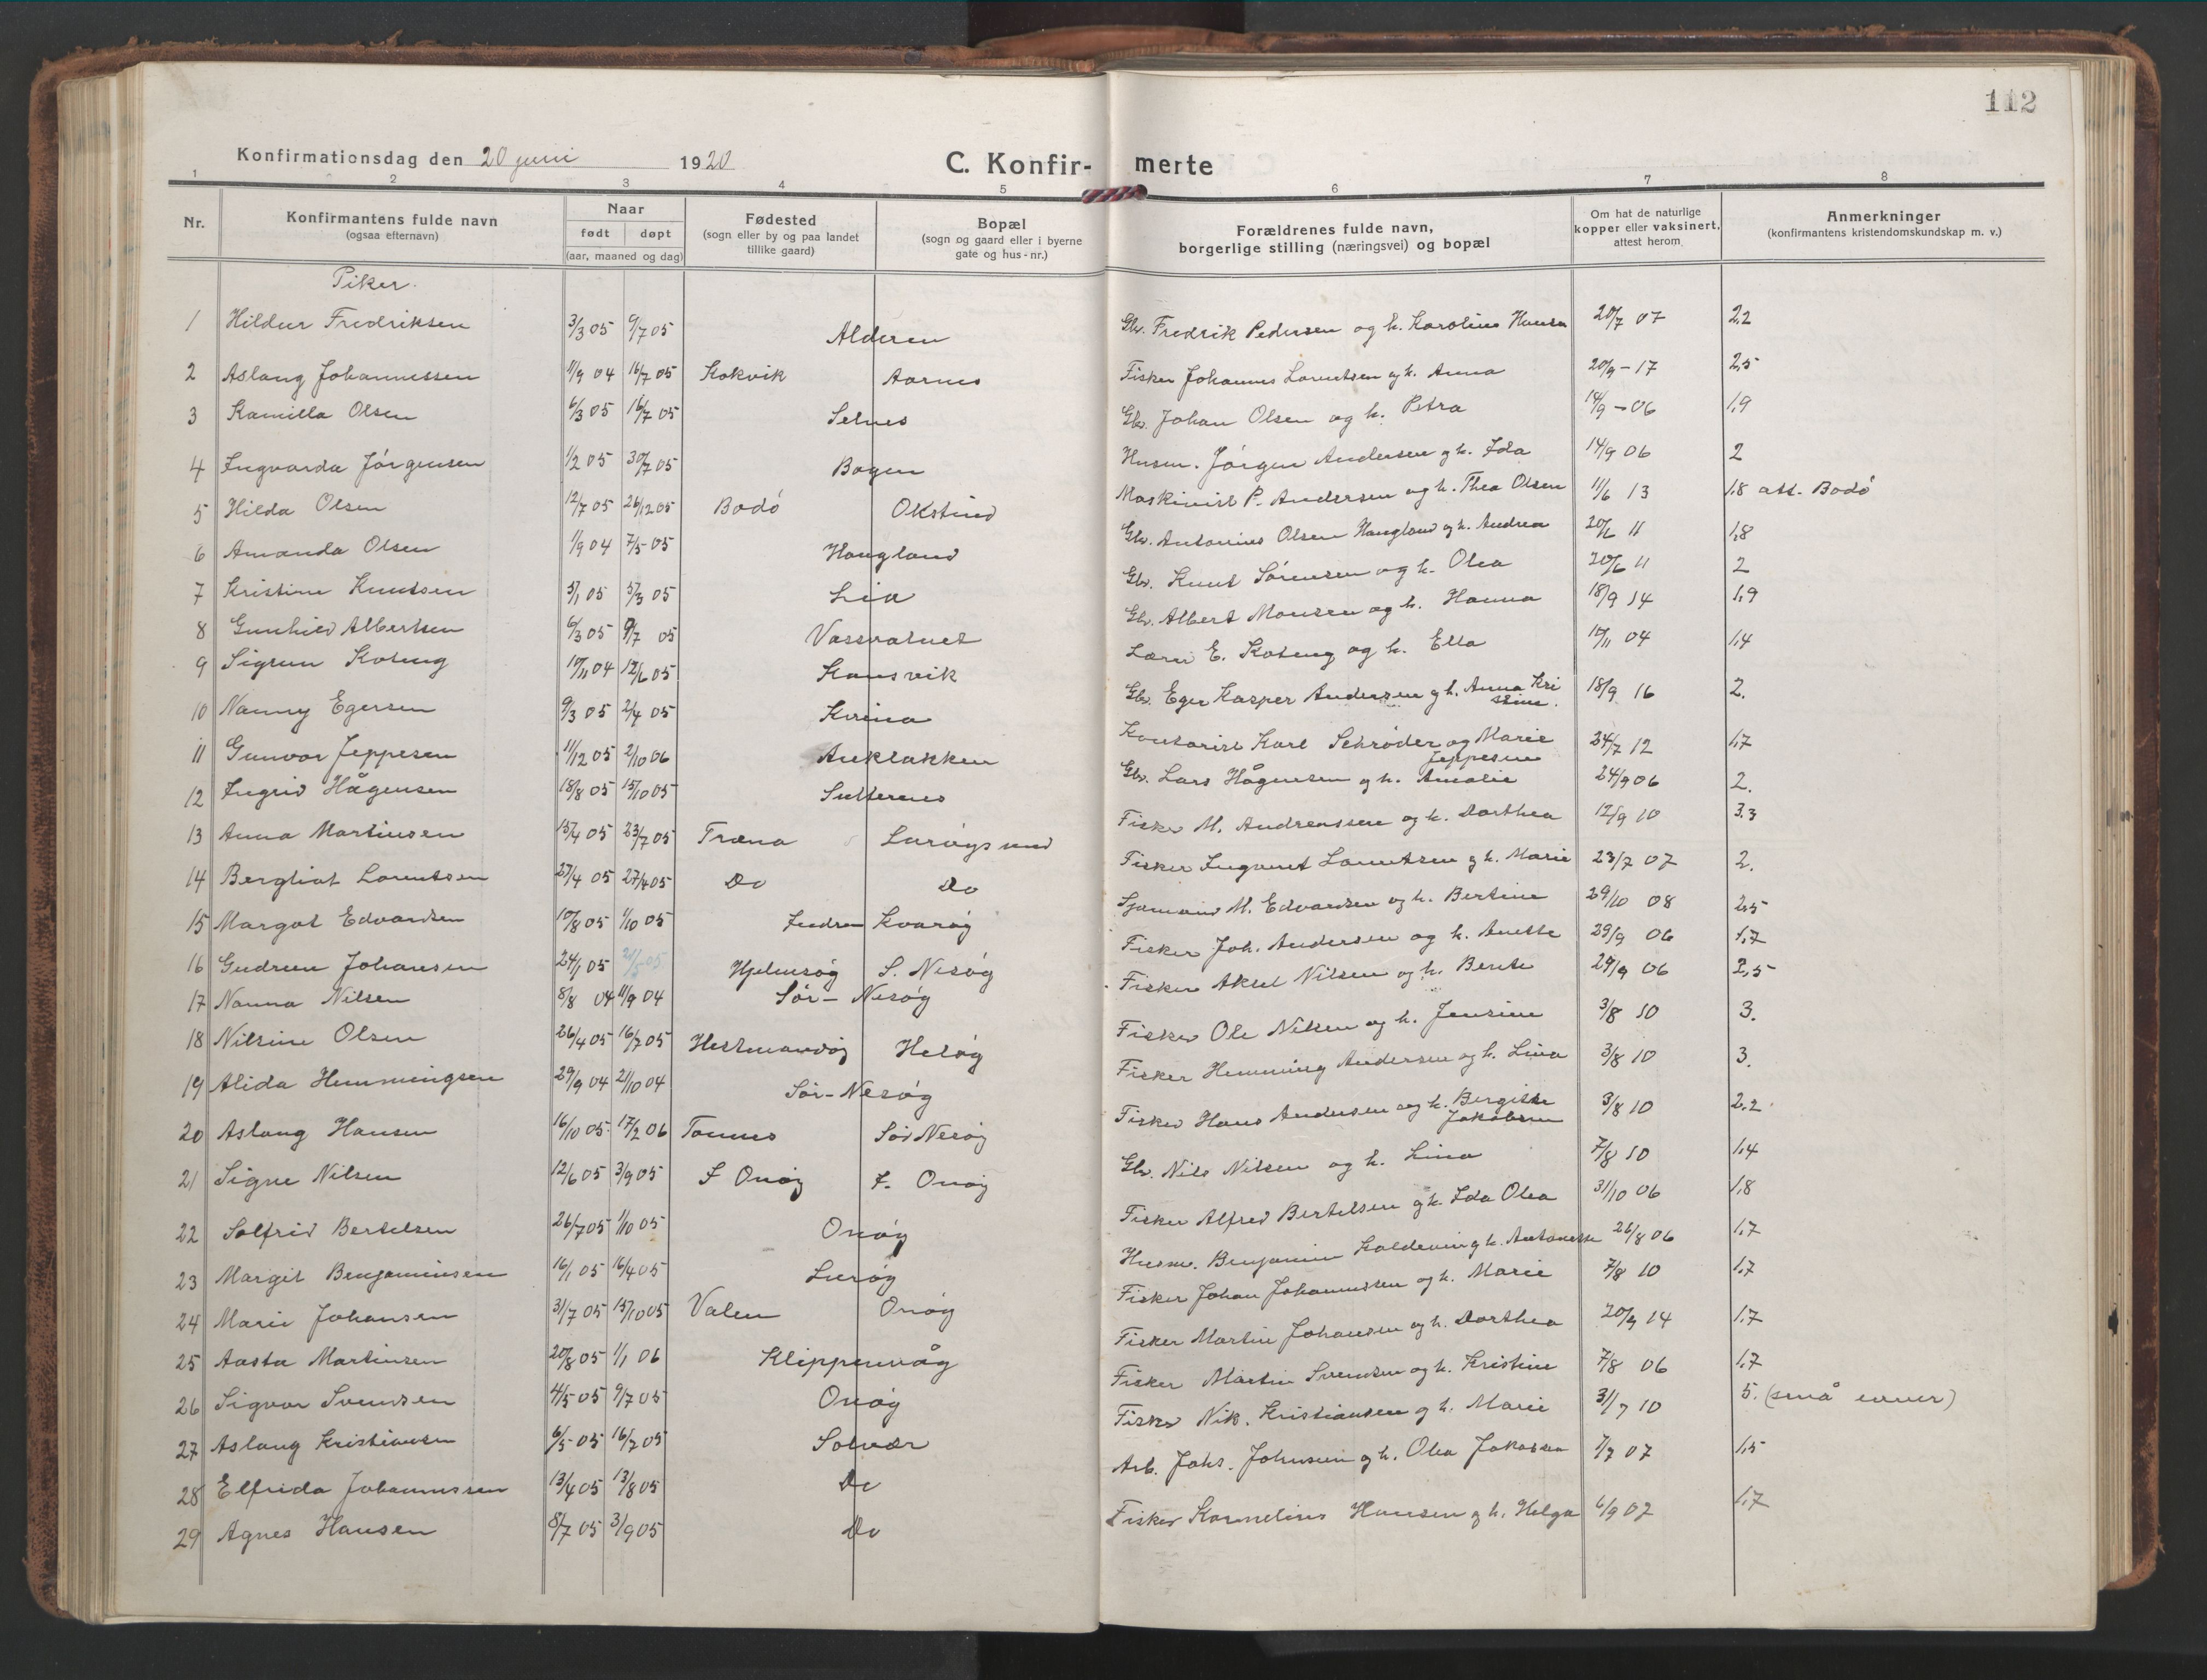 112
Konfirmationsdag den 20 juni 1920 C. Konfir- merte
1 2 3 4 5 6 7 8
Nr. Konfirmantens fulde navn (ogsaa efternavn) Naar født døpt (aar, maaned og dag) Fødested (sogn eller by og paa landet tillike gaard) Bopæl (sogn og gaard eller i byerne gate og hus-nr.) Forældrenes fulde navn, borgerlige stilling (næringsvei) og bopæl Om hat de naturlige kopper eller vaksinert, attest herom Anmerkninger (konfirmantens kristendomskundskap m. v.)
Piker.
1 Hildur Fredriksen 3/3 05 9/7 05 Alderen Gbr. Fredrik Pedersen og h. Karoline Hansen 20/7 07 2,2
2 Aslaug Johannessen 11/9 04 16/7 05 Kokvik Aarnes Fisker Johannes Lorentsen og h. Anna 20/9 - 17 2,5
3 Kamilla Olsen 6/3 05 16/7 05 Selnes Gbr. Johan Olsen og h. Petra 14/9 - 06 1,9
4 Ingvarda Jørgensen 1/2 05 30/7 05 Bogen Husm. Jørgen Andersen og h. Ida 14/9 06 2
5 Hilda Olsen 12/7 05 26/12 05 Bodó Okstind Maskinist P. Andersen og h. Thea Olsen 11/6 13 1,8 att. Bodó
6 Amanda Olsen 1/9 04 7/5 05 Haugland Gbr. Antonius Olsen Haugland og h. Andrea 20/6 11 1,8
7 Kristine Knutsen 5/1 05 5/3 05 Lia Gbr. Knut Sørensen og h. Olea 20/6 11 2
8 Gunhild Albertsen 6/3 05 9/7 05 Vassvatnet Gbr. Albert Monsen og h. Hanna 18/9 14 1,9
9 Sigrun Koteng 10/11 04 12/6 05 Konsvik Lærer E. Koteng og h. Ella 10/11 04 1,4
10 Nanny Egersen 9/3 05 2/4 05 Kvina Gbr. Eger Kasper Andersen og h. Anna Kristine. 18/9 16 2.
11 Gunvor Jeppesen 11/12 05 2/10 06 Auklakken Kontorist Karl Schrøder og Marie Jeppesen 24/7 12 1,7
12 Ingrid Hågensen 18/8 05 15/10 05 Sulterenes Gbr. Lars Hågensen og h. Amalie 24/9 06 2.
13 Anna Martinsen 15/4 05 23/7 05 Træna Lurøysund Fisker M. Andreassen og h. Dorthea 12/9 10 3.3
14 Bergliot Lorentsen 27/4 05 27/4 05 Do Do Fisker Ingvart Lorentsen og h. Marie 23/7 07 2.
15 Margot Edvardsen 10/8 05 1/10 05 Indre Kvarøy Sjømand M. Edvardsen og h. Bertine 29/10 08 2,5
16 Gudrun Johansen 24/1 05 21/5 05 Hjelmsøy S. Nesøy Fisker Joh. Andersen og h. Anette 29/9 06 1,7
17 Nanna Nilsen 8/8 04 11/9 04 Sør-Nesøy Fisker Aksel Nilsen og h. Berete 29/9 06 2,5
18 Nilsine Olsen 26/4 05 16/7 05 Hestmandøy Hesøy Fisker Ole Nilsen og h. Jensine 3/8 10 3.
19 Alida Hemmingsen 29/9 04 21/10 04 Sør-Nesøy Fisker Hemming Andersen og h. Lina 3/8 10 3.
20 Aslaug Hansen 16/10 05 17/2 06 Tonnes Sør Nesøy Fisker Hans Andersen og h. Bergitte Jakobsen 3/8 10 2.2
21 Signe Nilsen 12/6 05 3/9 05 I. Onøy I. Onøy Gbr. Nils Nilsen og h. Lina 7/8 10 1,4
22 Solfrid Bertelsen 26/7 05 1/10 05 Onøy Fisker Alfred Bertelsen og h. Ida Olea 31/10 06 1,8
23 Margit Benjaminsen 16/1 05 16/4 05 Lurøy Husm. Benjamin Koldevin og h. Antonette 26/8 06 1,7
24 Marie Johansen 31/7 05 15/10 05 Valen Onøy Fisker Johan Johannessen og h. Marie 7/8 10 1,7
25 Aasta Martinsen 20/8 05 1/1 06 Klippenvåg Fisker Martin Johansen og h. Dorthea 20/9 14 1,7
26 Sigvor Svendsen 4/5 05 9/7 05 Onøy Fisker Martin Svendsen og h. Kristine 7/8 06 1,7
27 Aslaug Kristiansen 6/5 05 16/7 05 Solvær Fisker Nik. Kristiansen og h. Marie 31/7 10 5. (små evner)
28 Elfrida Johannessen 13/4 05 13/8 05 Do Arb. Johs. Johnsen og h. Olea Jakobsen 7/7 07 1,5
29 Agnes Hansen 8/7 05 3/9 05 Do Fisker Kornelius Hansen og h. Helga 6/9 07 1,7